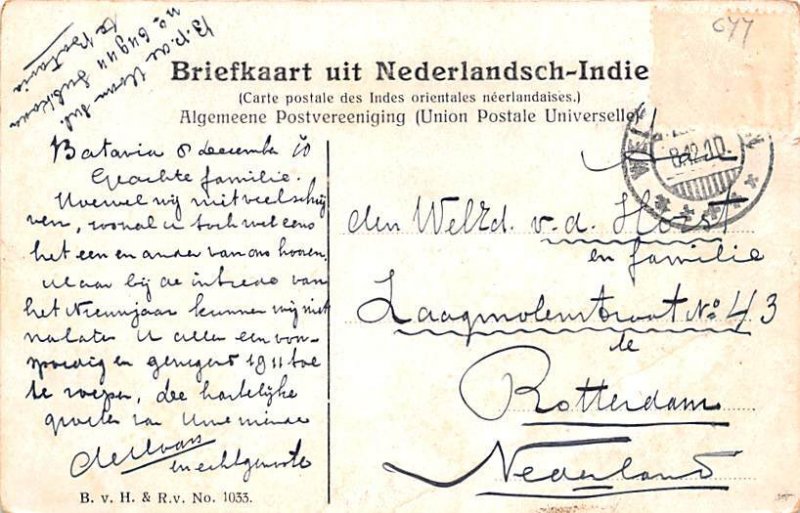 677
te Batavia
Briefkaart uit Nederlandsch-Indie
(Carte postale des Indes orientales néerlandaises.)
Algemeene Postvereeniging (Union Postale Universelle)
8.12.10.
Batavia 8 december 10
Geachte familie.
Hoewel wij niet veel schrij
ven, zoudt u toch wel eens
het een en ander van ons hooren.
Maar bij de intrede van
het Nieuwjaar kunnen wij niet
nalaten U allen een voor-
spoedig en gezegend 1911 toe
te roepen, hartelijke
groeten van Uwe minde
en echtgenoote
den WelEd. v.d. Horst
en familie
Zaagmolenstraat No 43
te
Rotterdam
Nederland
B. v. H. & R.v. No. 1033.